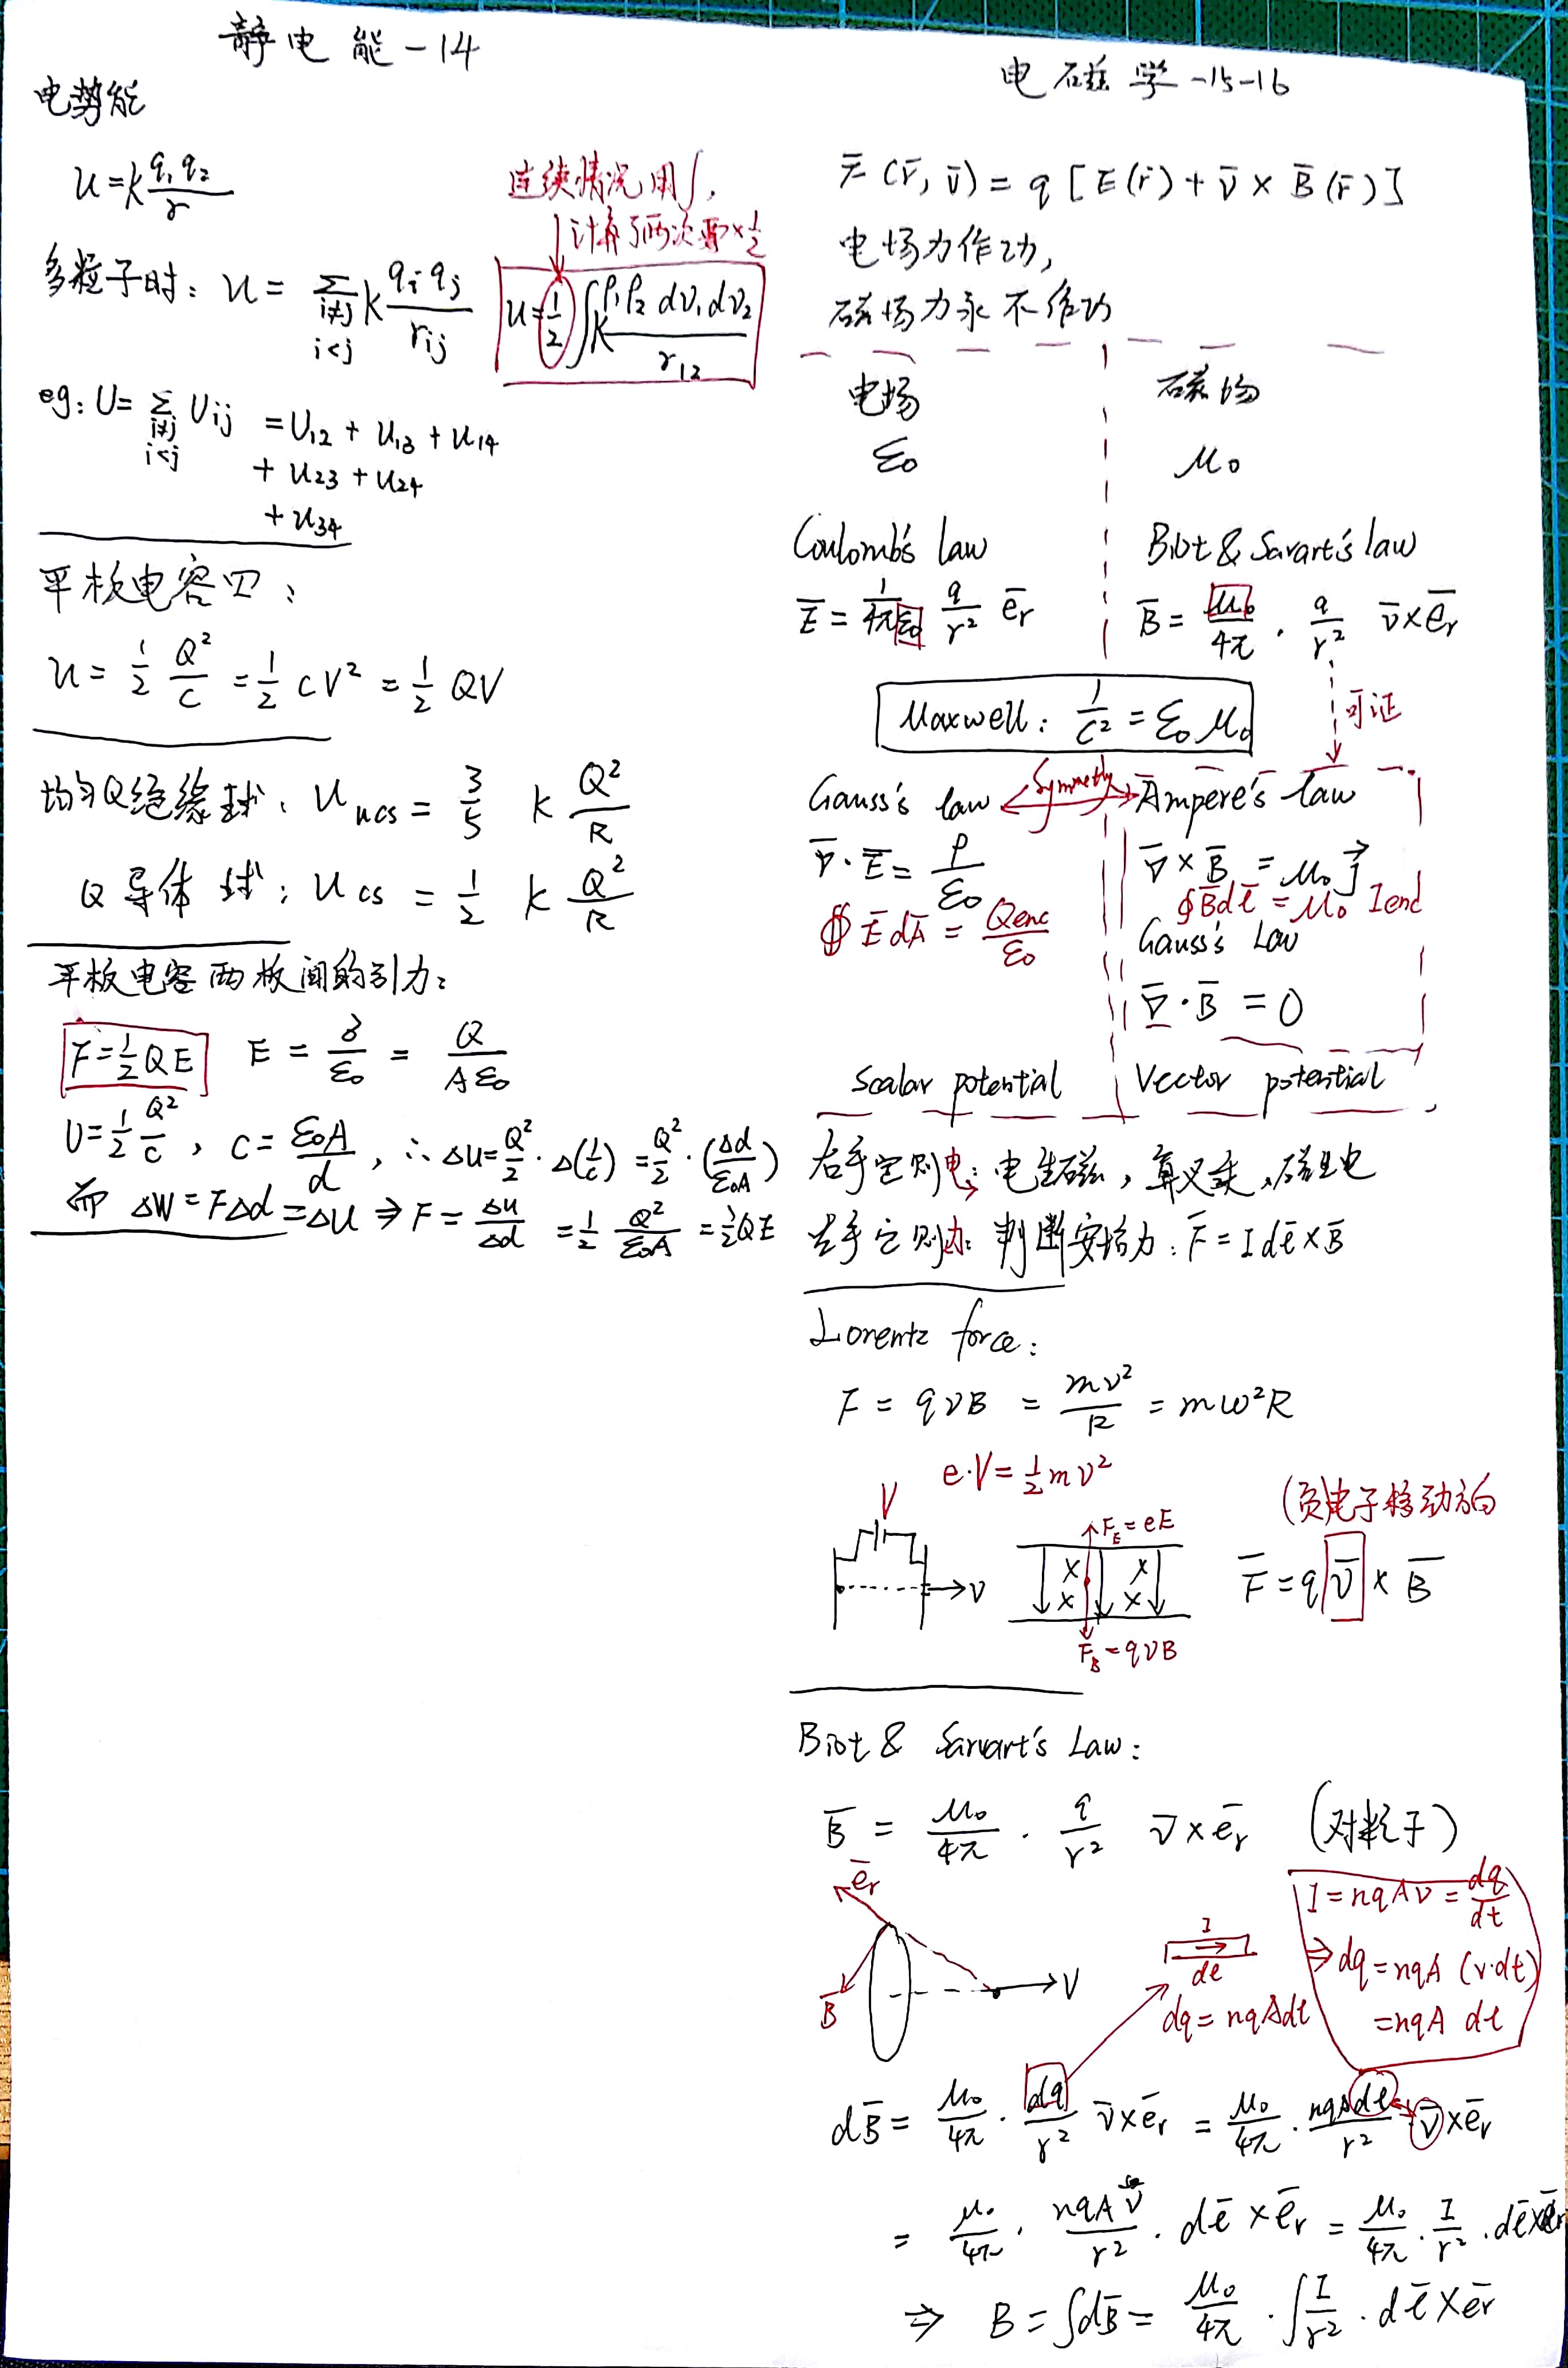 静电能-14
电势能
u=k q₁q₂/r
连续情况用∫,
计算了两次要×1/2
多粒子时: u = Σ_{i≠j, i<j} k q_i q_j / r_ij
u=1/2 ∫k ρ₁ρ₂ dv₁dv₂ / r₁₂
eg: U= Σ_{i≠j, i<j} U_ij = U₁₂ + U₁₃ + U₁₄
+ U₂₃ + U₂₄
+ U₃₄
平板电容四:
u = 1/2 Q²/C = 1/2 CV² = 1/2 QV
均匀Q绝缘球: U_ncs = 3/5 k Q²/R
Q导体球: U_cs = 1/2 k Q²/R
平板电容两板间的引力:
F=1/2 QE E = δ/ε₀ = Q/Aε₀
U=1/2 Q²/C, C = ε₀A/d, ∴ ΔU=Q²/2 · Δ(1/C) = Q²/2 · (Δd/ε₀A)
而 ΔW = FΔd = ΔU ⇒ F = ΔU/Δd = 1/2 Q²/ε₀A = 1/2 QE
电磁学-15-16
F̄(r̄, v̄) = q [E(r̄) + v̄ × B̄(r̄)]
电场力作功,
磁场力永不作功
电场 磁场
ε₀ μ₀
Coulomb's law Biot & Savart's law
Ē = 1/4πε₀ q/r² ē_r B̄ = μ₀/4π · q/r² v̄×ē_r
Maxwell: 1/c² = ε₀μ₀
可证
Gauss's law Symmetry Ampere's law
∇̄·Ē = ρ/ε₀ ∇̄×B̄ = μ₀ J⃗
∯ĒdĀ = Qenc/ε₀ ∮B̄dl̄ = μ₀ Iend
Gauss's Law
∇̄·B̄ = 0
Scalar potential Vector potential
右手定则电: 电生磁, 算叉乘, 磁生电
左手定则力: 判断安培力: F̄ = I dl̄×B̄
Lorentz force:
F = qvB = mv²/R = mω²R
e·V = 1/2 mv²
V
(负)电子移动方向
F_E = eE
v
F̄ = q v̄ × B̄
F_B = qvB
Biot & Savart's Law:
B̄ = μ₀/4π · q/r² v̄×ē_r (对粒子)
ē_r
I = nqAv = dq/dt
I
dl
⇒ dq = nqA (v·dt)
B̄
V
dq = nqAdl
= nqA dl
dB̄ = μ₀/4π · dq/r² v̄×ē_r = μ₀/4π · nqAdl/r² v̄×ē_r
= μ₀/4π · nqAv̄/r² · dl̄×ē_r = μ₀/4π · I/r² · dl̄×ē_r
⇒ B = ∫dB̄ = μ₀/4π · ∫I/r² · dl̄×ē_r